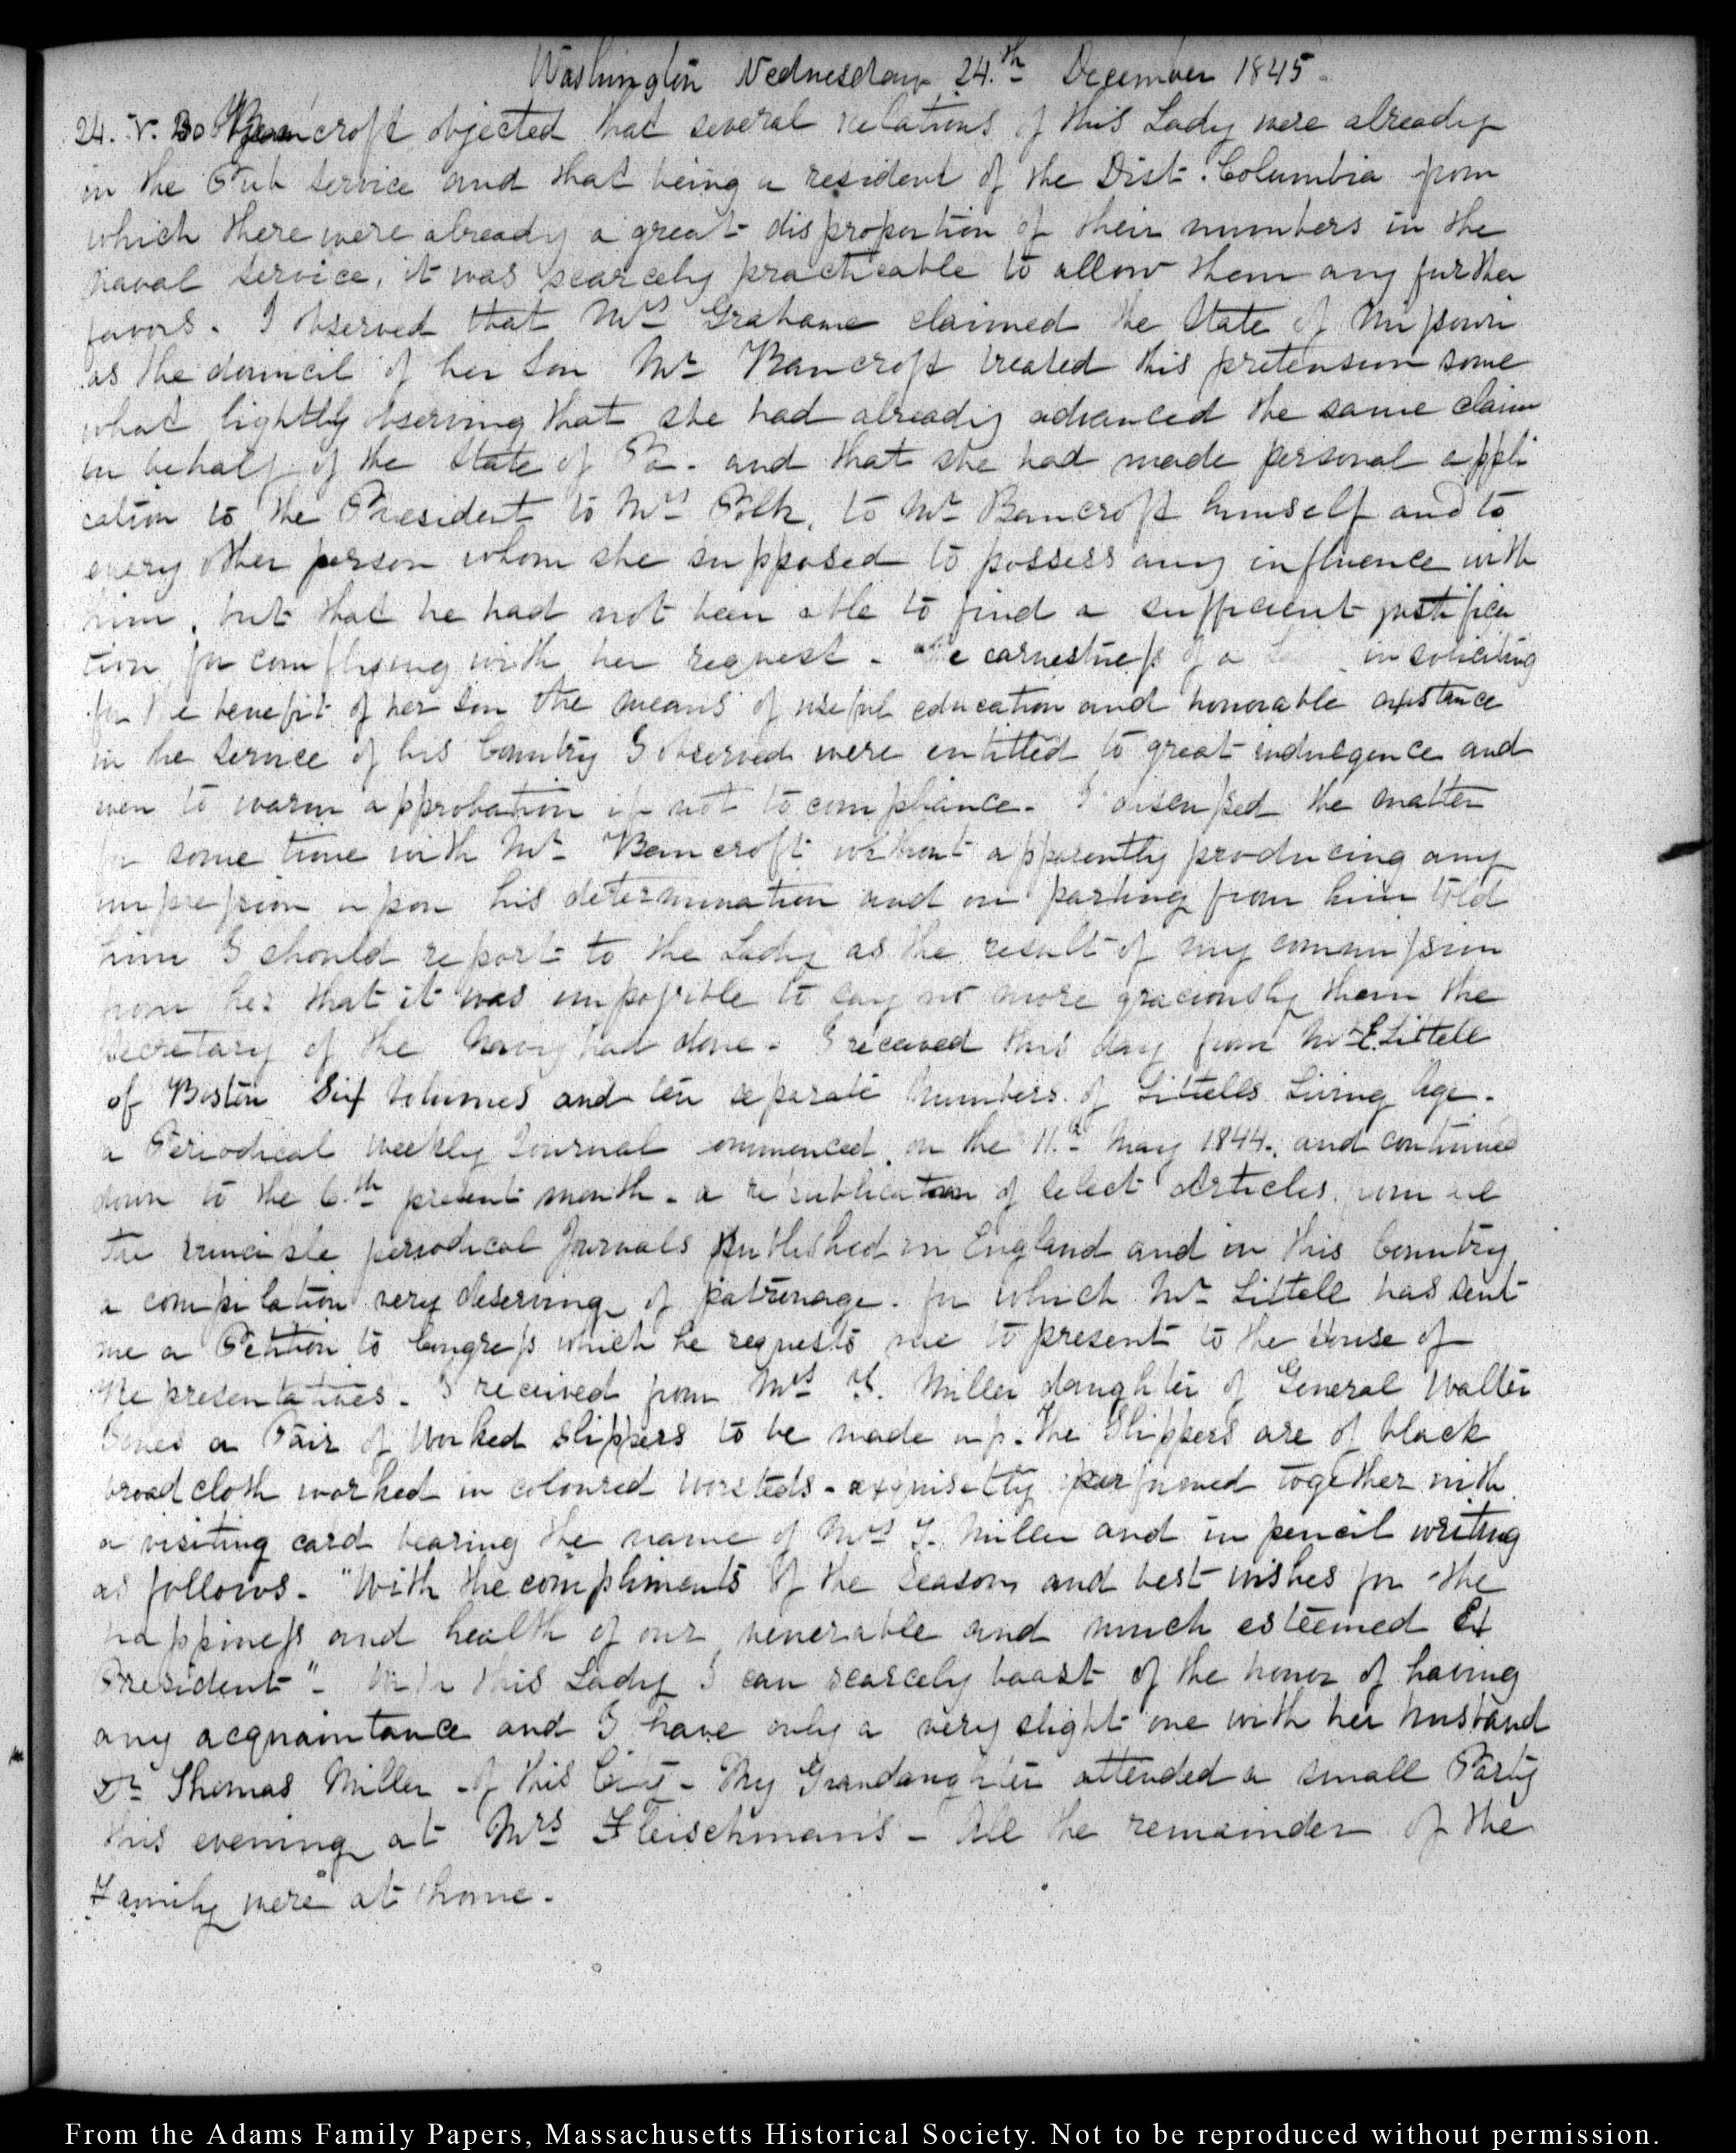 Washington Wednesday 24.th December 1845.
24. V. Bancroft objected that several relations of this Lady were already
in the Pub service and that being a resident of the Dist. Columbia from
which there were already a great disproportion of their numbers in the
naval service, it was scarcely practicable to allow them any further
favors. I observed that Mrs Grahame claimed the State of Missouri
as the domicil of her Son Mr Bancroft treated this pretension some
what lightly observing that she had already advanced the same claim
in behalf of the State of Pa. and that she had made personal appli
cation to the President to Mrs Polk, to Mr Bancroft himself and to
every other person whom she supposed to possess any influence with
him, but that he had not been able to find a sufficient justifica
tion for complying with her request. The earnestness of a Lady in soliciting
for the benefit of her Son the means of useful education and honorable assistance
in the service of his Country I observed were entitled to great indulgence and
even to warm approbation if not to compliance. I discussed the matter
for some time with Mr Bancroft without apparently producing any
impression upon his determination and on parting from him told
him I should report to the Lady as the result of my commission
from her that it was impossible to say no more graciously them the
Secretary of the Navy had done. I received this day from Mr E. Littell
of Boston Six Volumes and ten separate Numbers of Littells Living Age.
a Periodical weekly Journal commenced on the 11.th May 1844. and continued
down to the 6.th present month. a republication of select Articles from all
the principle periodical Journals published in England and in this Country
a compilation very deserving of patronage. for which Mr Littell has sent
me a Petition to Congress which he requests me to present to the House of
Representatives. I received from Mrs T. Miller daughter of General Walter
Jones a Pair of Worked Slippers to be made up. The Slippers are of black
broadcloth worked in coloured worsteds. exquisitly perfumed together with
a visiting card bearing the name of Mrs T. Miller and in pencil writing
as follows. "With the compliments of the Season, and best wishes for the
happiness and health of our venerable and much esteemed Ex
President". With this Lady I can scarcely boast of the honor of having
any acquaintance and I have only a very slight one with her husband
Dr Thomas Miller of this City. My Grandaughter attended a small Party
this evening at Mrs Fleischman's. All the remainder of the
Family were at home.
From the Adams Family Papers, Massachusetts Historical Society. Not to be reproduced without permission.